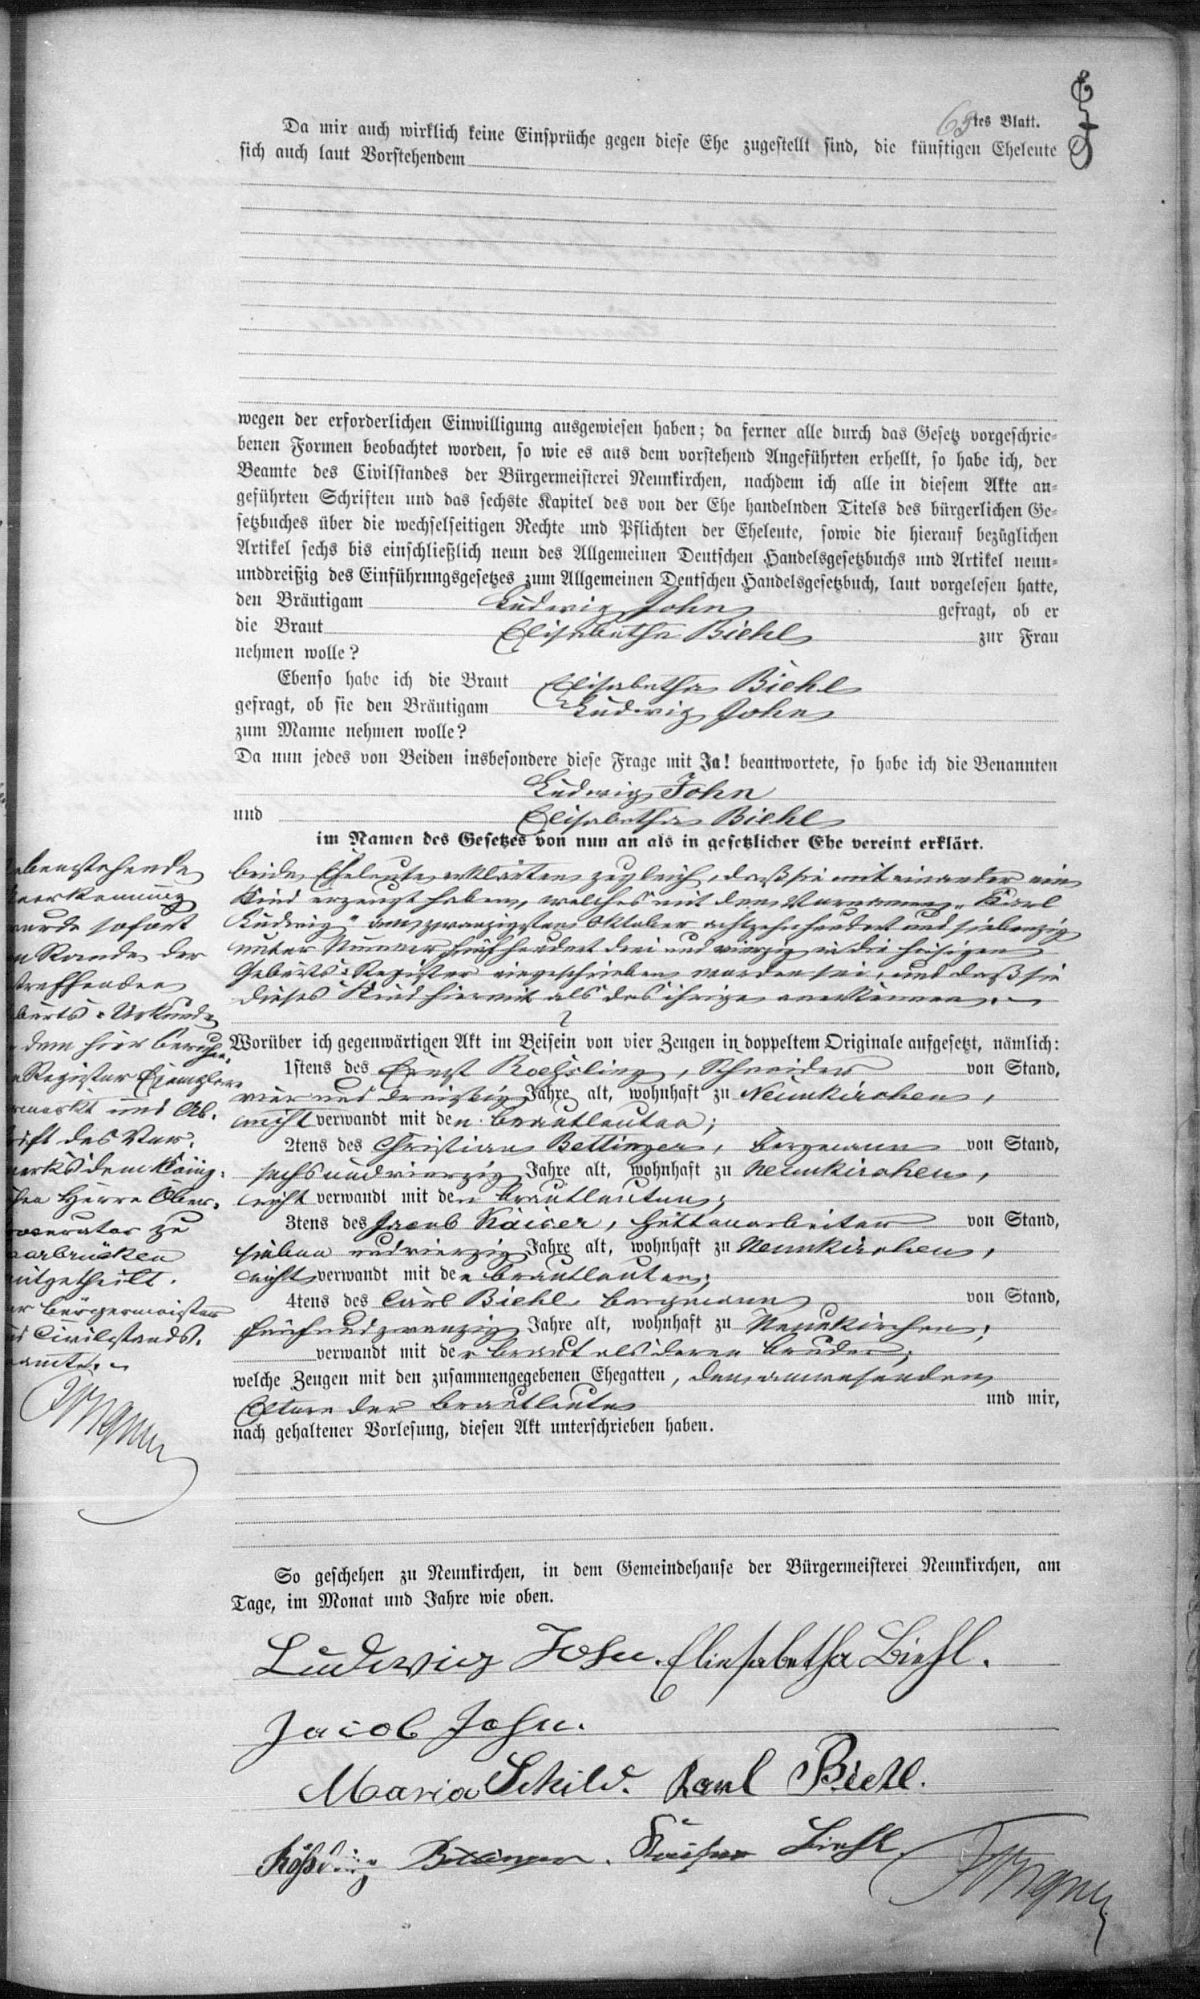 69tes Blatt.
Da mir auch wirklich keine Einsprüche gegen diese Ehe zugestellt sind, die künftigen Eheleute
sich auch laut Vorstehendem
wegen der erforderlichen Einwilligung ausgewiesen haben; da ferner alle durch das Gesetz vorgeschrie-
benen Formen beobachtet worden, so wie es aus dem vorstehend Angeführten erhellt, so habe ich, der
Beamte des Civilstandes der Bürgermeisterei Neunkirchen, nachdem ich alle in diesem Akte an-
geführten Schriften und das sechste Kapitel des von der Ehe handelnden Titels des bürgerlichen Ge-
setzbuches über die wechselseitigen Rechte und Pflichten der Eheleute, sowie die hierauf bezüglichen
Artikel sechs bis einschließlich neun des Allgemeinen Deutschen Handelsgesetzbuchs und Artikel neun-
unddreißig des Einführungsgesetzes zum Allgemeinen Deutschen Handelsgesetzbuch, laut vorgelesen hatte,
den Bräutigam Ludwig John gefragt, ob er
die Braut Elisabetha Biehl zur Frau
nehmen wolle?
Ebenso habe ich die Braut Elisabetha Biehl
gefragt, ob sie den Bräutigam Ludwig John
zum Manne nehmen wolle?
Da nun jedes von Beiden insbesondere diese Frage mit Ja! beantwortete, so habe ich die Benannten
Ludwig John
und Elisabetha Biehl
im Namen des Gesetzes von nun an als in gesetzlicher Ehe vereint erklärt.
beide Eheleute erklärten zugleich, daß sie mit einander ein
Kind erzeugt haben, welches mit den Vornamen „Karl
Ludwig" am zwanzigsten Oktober achtzehnhundert und siebenzig
unter Nummer fünfhundert drei und vierzig in die hiesigen
Geburts-Register eingeschrieben worden sei, und daß sie
dieses Kind hiermit als das ihrige anerkennen.
Worüber ich gegenwärtigen Akt im Beisein von vier Zeugen in doppeltem Originale aufgesetzt, nämlich:
1stens des Ernst Roehsling, Schneider von Stand,
vier und dreißig Jahre alt, wohnhaft zu Neunkirchen,
nicht verwandt mit den Brautleuten;
2tens des Christian Bettinger, Bergmann von Stand,
sechsundvierzig Jahre alt, wohnhaft zu Neunkirchen,
nicht verwandt mit den Brautleuten;
3tens des Jacob Kaiser, Hüttenarbeiter von Stand,
sieben undvierzig Jahre alt, wohnhaft zu Neunkirchen,
nicht verwandt mit den Brautleuten;
4tens des Carl Biehl Bergmann von Stand,
fünfundzwanzig Jahre alt, wohnhaft zu Neunkirchen;
verwandt mit der Braut als deren Bruder;
welche Zeugen mit den zusammengegebenen Ehegatten, den anwesenden
Eltern der Brautleute und mir,
nach gehaltener Vorlesung, diesen Akt unterschrieben haben.
ebenstehende
nerkennung
wurde sofort
m Rande der
treffenden
burts-Urkunde
dem hier beruhen-
n Register Exemplare
rmerkt und Ab-
rift des Ver-
merks dem König-
chen Herrn Ober-
rocurator zu
aarbrücken
mitgetheilt.
er Bürgermeister
nd Civilstands-
eamte.
So geschehen zu Neunkirchen, in dem Gemeindehause der Bürgermeisterei Neunkirchen, am
Tage, im Monat und Jahre wie oben.
Ludwig John. Eliesabetha Biehl.
Jacob John.
Maria Schild. Karl Biehl.
Rößling Bettinger. Kaiser Biehl.